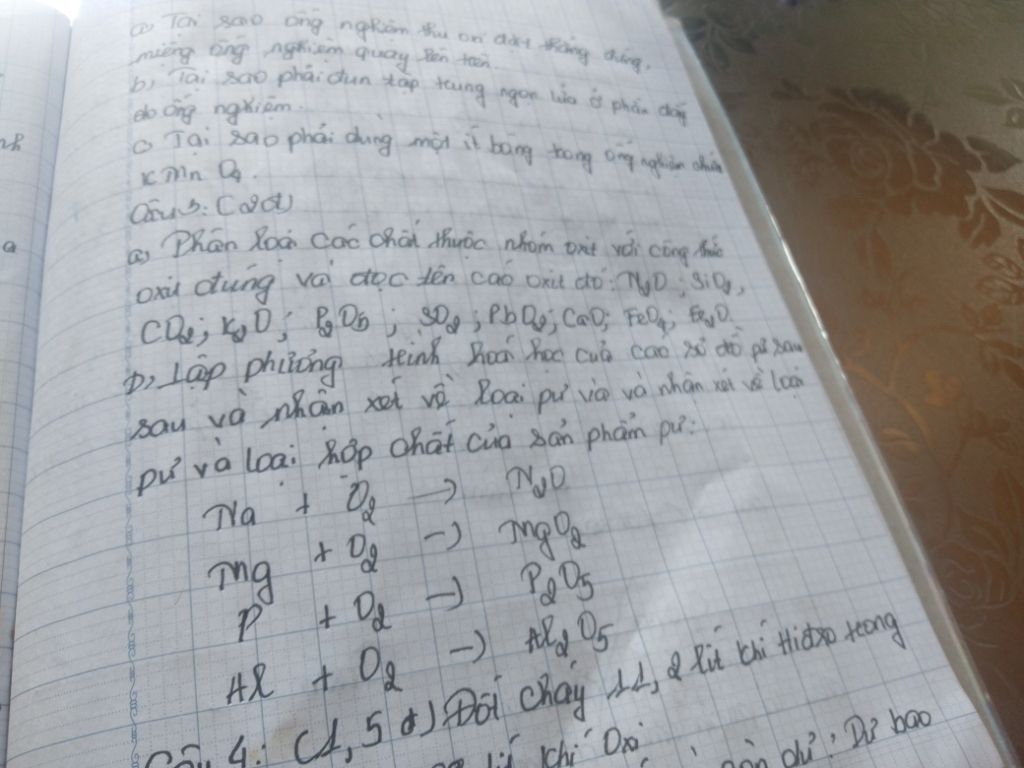 a) Tại sao ống nghiệm thu oxi đặt thẳng đứng,
miệng ống nghiệm quay lên trên
b, Tại sao phải đun tập trung ngọn lửa ở phần đáy
ống nghiệm.
c) Tại sao phải dùng một ít bông trong ống nghiệm chứa
KMnO4.
Câu 3: (2đ)
a, Phân loại các chất thuộc nhóm oxit với công thức
oxit đúng và đọc tên các oxit đó: N2O; SiO2,
CO2; K2O; P2O5; SO2; PbO2; CaO; FeO4; Fe2O
b, Lập phương trình hoá học của các sơ đồ pứ sau
sau và nhận xét về loại pứ và và nhận xét về loại
pứ và loại hợp chất của sản phẩm pứ:
Na + O2 → N2O
Mg + O2 → MgO2
P + O2 → P2O5
Al + O2 → Al2O5
Câu 4: (1,5đ) Đốt cháy 11,2 lít khí Hiđro trong
khí Oxi
Dư bao
nh
a